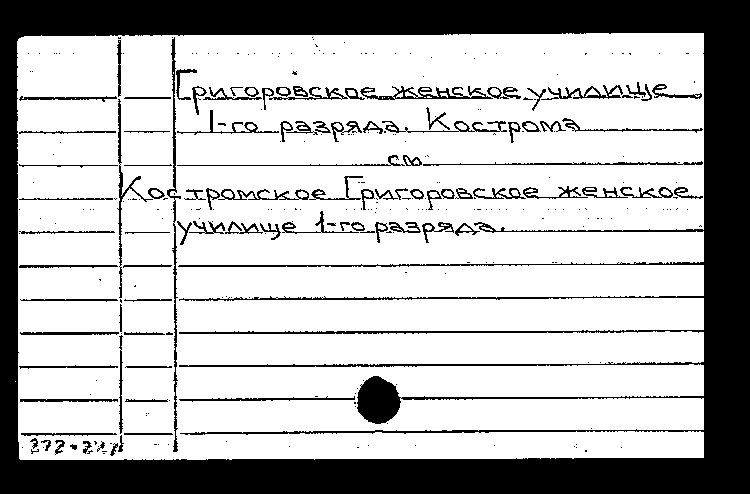 Григоровское женское училище
1-го разряда. Кострома
см.
Костромское Григоровское женское
училище 1-го разряда.